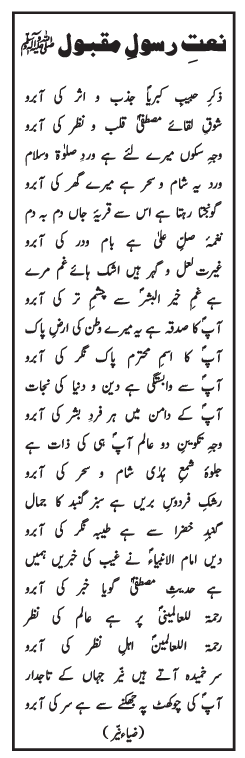 نعتِ رسولِ مقبول ﷺ
ذکرِ حبیبِ کبریاؐ جذب و اثر کی آبرو
شوقِ لقائے مصطفیٰؐ قلب و نظر کی آبرو
وجہِ سکوں میرے لئے ہے وردِ صلوٰۃ و سلام
ورد یہ شام و سحر ہے میرے گھر کی آبرو
گونجتا رہتا ہے اس سے قریۂ جاں دم بہ دم
نغمۂ صلِّ علیٰ ہے بام و در کی آبرو
غیرتِ لعل و گہر ہیں اشک ہائے غم مرے
ہے غمِ خیر البشرؐ سے چشمِ تر کی آبرو
آپؐ کا صدقہ ہے یہ میرے وطن کی ارضِ پاک
آپؐ کا اسمِ محترم پاک نگر کی آبرو
آپؐ سے وابستگی ہے دین و دنیا کی نجات
آپؐ کے دامن میں ہر فردِ بشر کی آبرو
وجہِ تکوینِ دو عالم آپؐ ہی کی ذات ہے
جلوۂ شمعِ ہدٰی شام و سحر کی آبرو
رشکِ فردوسِ بریں ہے سبز گنبد کا جمال
گنبدِ خضرا سے ہے طیبہ نگر کی آبرو
دیں امام الانبیاءؐ نے غیب کی خبریں ہمیں
ہے حدیثِ مصطفیٰؐ گویا خبر کی آبرو
رحمۃ للعالمینؐ پر ہے عالم کی نظر
رحمۃ اللعالمینؐ اہلِ نظر کی آبرو
سر خمیدہ آتے ہیں نیّر جہاں کے تاجدار
آپؐ کی چوکھٹ پہ جھکنے سے ہے سر کی آبرو
(ضیاء نیّر)